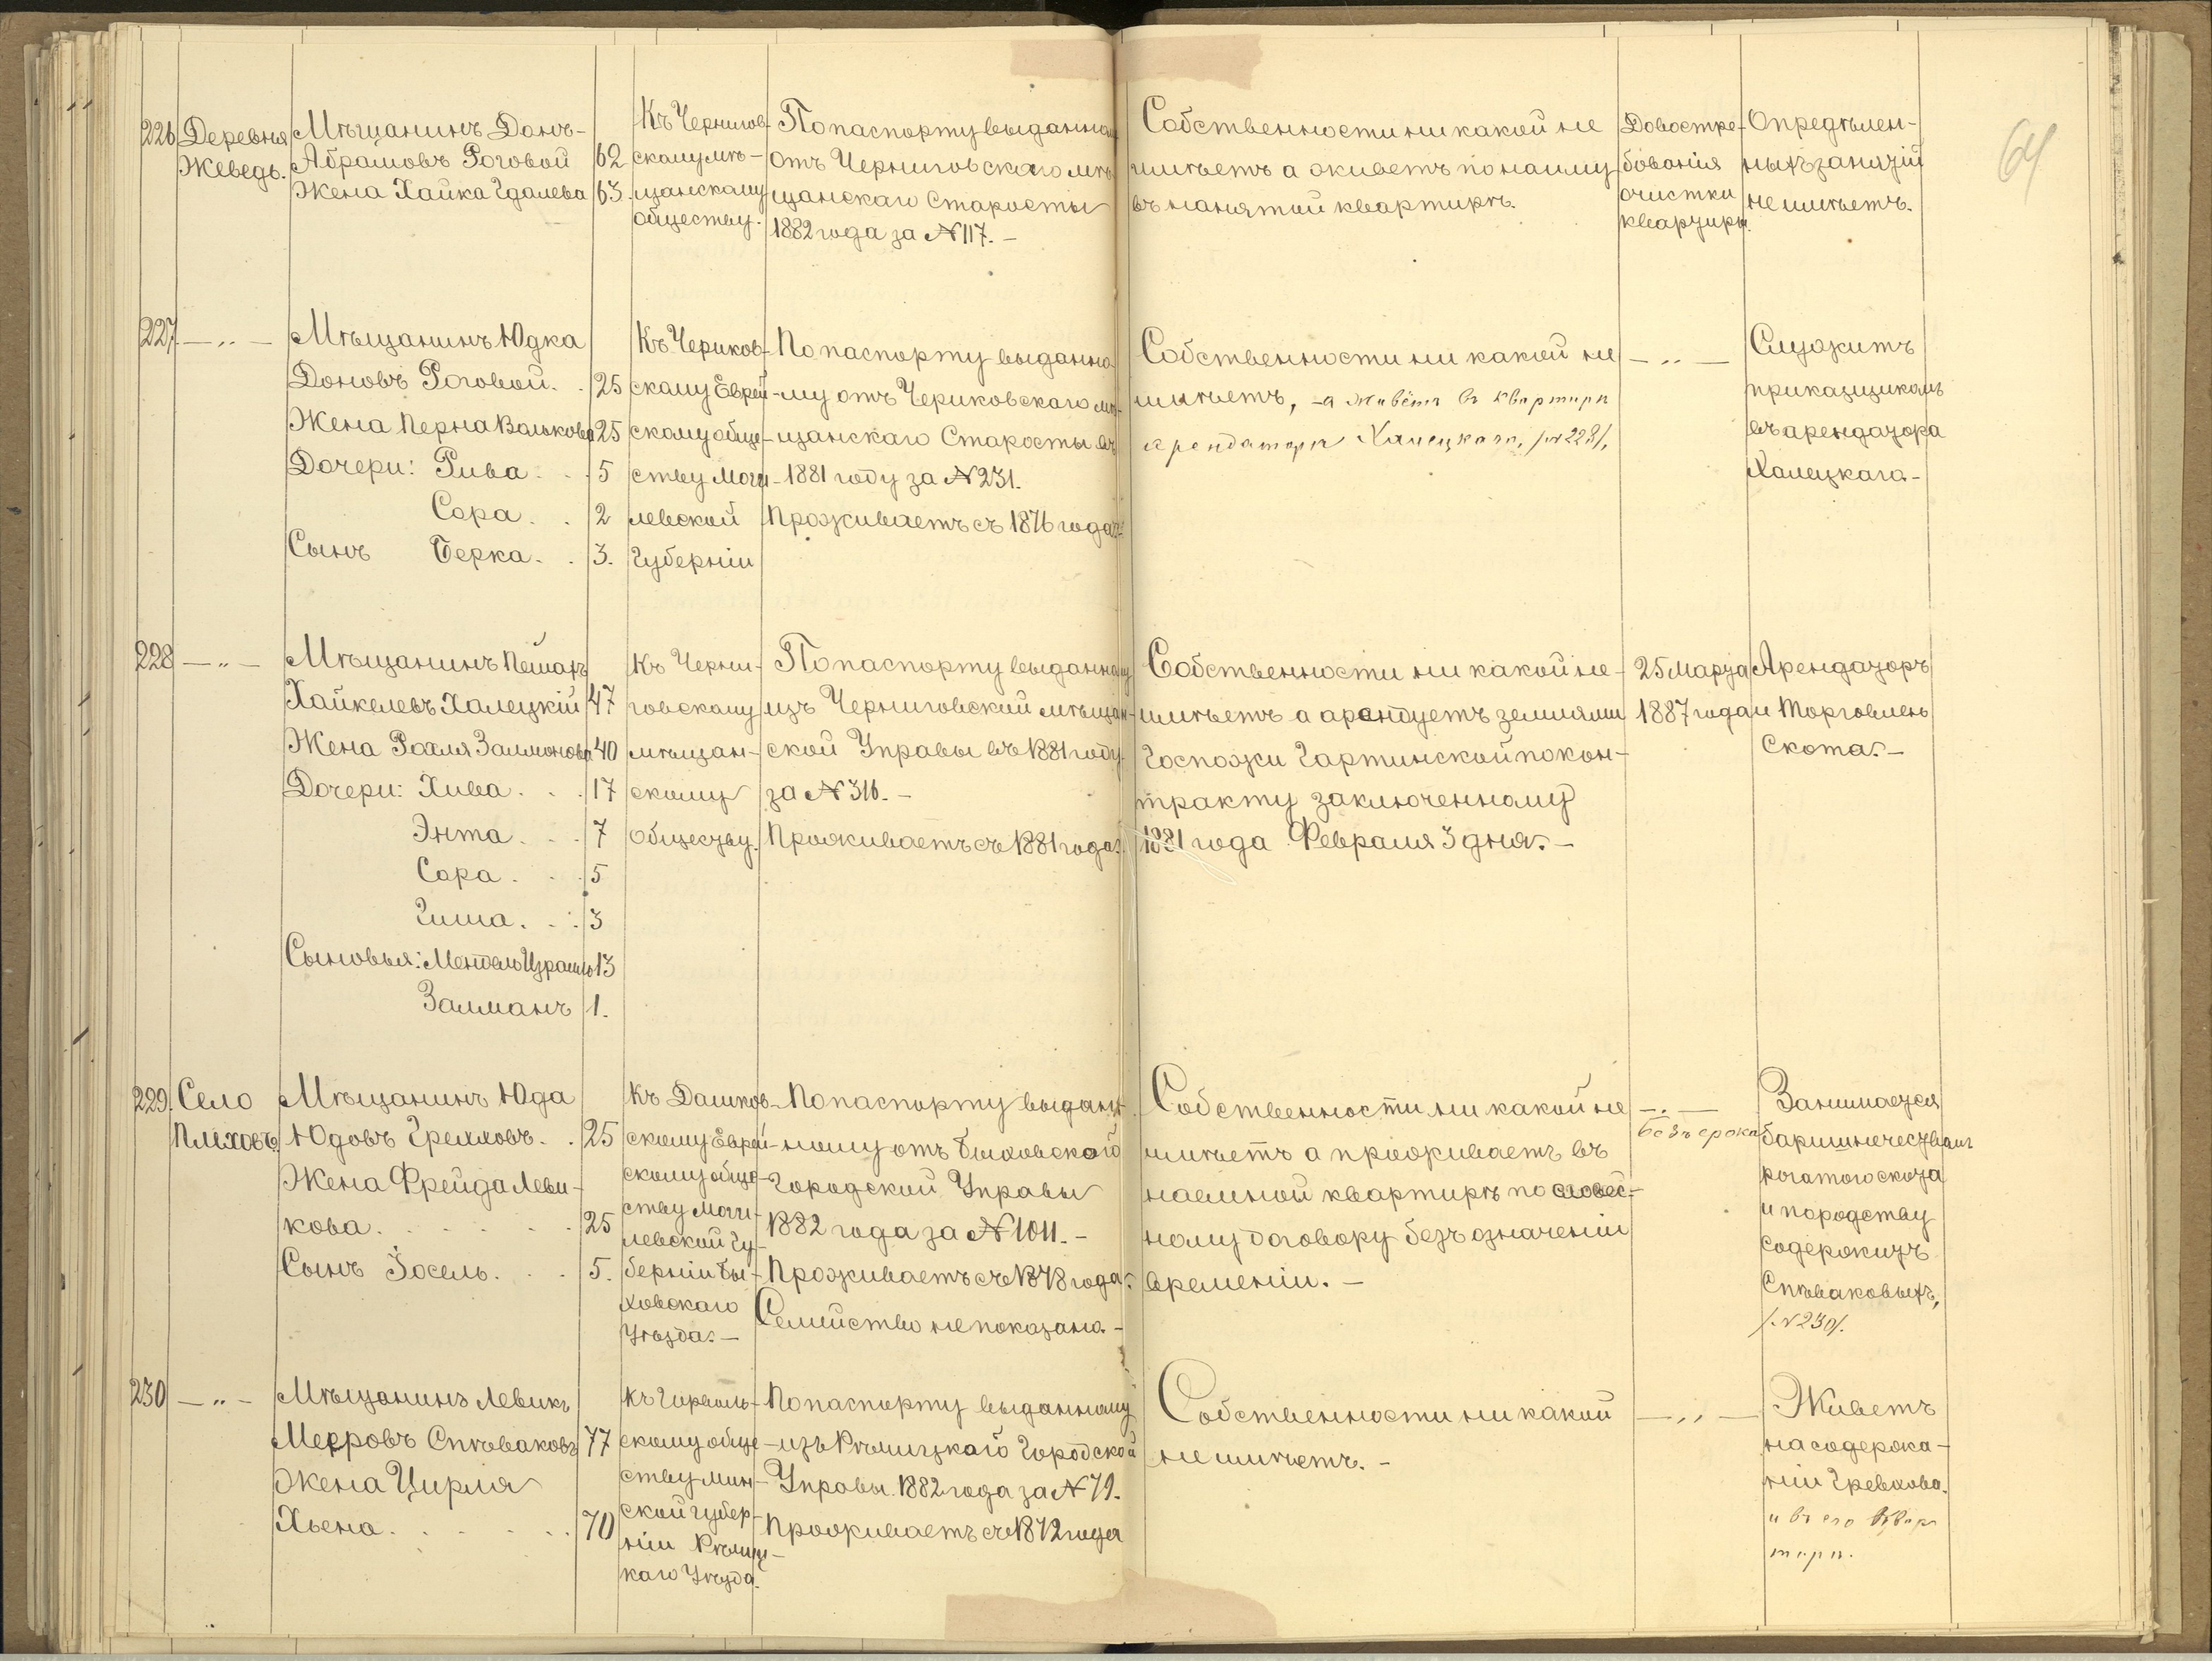 64
226. Деревня Жеведь.
Мѣщанинъ Донъ-
Абрамовъ Роговой 62
Жена Хайка Гдалева 63.
Къ Чернигов-
скому мѣ-
щанскому
обществу.
По паспорту выданному
отъ Черниговскаго мѣ-
щанскаго Старосты
1882 года за № 117. —
Собственности ни какой не
имѣетъ а живетъ по найму
въ нанятой квартирѣ.
До востре-
бованія
очистки
квартиры.
Опредѣлен-
ныхъ занятій
не имѣетъ.
227 — „ —
Мѣщанинъ Юдка
Доновъ Роговой. . 25
Жена Перна Валькова 25
Дочери: Рива . . . 5
Сора . . 2
Сынъ Берка . . 3.
Къ Чериков-
скому Еврей-
скому обще-
ству Моги-
левской
Губерніи
По паспорту выданно-
му отъ Чериковскаго мѣ-
щанскаго Старосты въ
1881 году за № 231.
Проживаетъ съ 1876 года.
Собственности ни какой не
имѣетъ, — а живётъ въ квартирѣ
арендатора Халецкаго, /№ 228/.
— „ —
Служитъ
приказщикомъ
въ арендатора
Халецкага —
228 — „ —
Мѣщанинъ Пейсахъ
Хайкелевъ Халецкій 47
Жена Рохля Залмонова 40
Дочери: Хива . . . 17
Энта . . . 7
Сора . . . 5
Гиша . . : 3
Сыновья: Мендель Израиль 13
Залманъ 1.
Къ Черни-
говскому
мѣщан-
скому
Обществу.
По паспорту выданному
изъ Черниговской мѣщан-
ской Управы въ 1881 году
за № 316. —
Проживаетъ съ 1881 года.
Собственности ни какой не-
имѣетъ а арендуетъ земля ми
Госпожи Гартинской по кон-
тракту заключенному
1881 года Февраля 3 дня. —
25 Марта
1887 года
Арендаторъ
и Торговлею
Скота. —
229. Село
Плеховъ.
Мѣщанинъ Юда
Юдовъ Грейховъ . . 25
Жена Фрейда Леви-
кова . . . . . . 25
Сынъ Іосель . . . 5.
Къ Дашков-
скому Еврей-
скому обще-
ству Моги-
левской Гу-
берніи Бы-
ховскаго
Уѣзда. —
По паспорту выдан-
ному отъ Быховской
Городской Управы
1882 года за № 1011. —
Проживаетъ съ 1878 года.
Семейство не показано. —
Собственности ни какой не
имѣетъ а проживаетъ въ
наемной квартирѣ по словес-
ному договору безъ означеніи
времении. —
— „ —
безъ срока
Занимается
баришничествомъ
рогатого скота
и породству
содержитъ
Спѣваковыхъ,
/№ 230/.
230 — „ —
Мѣщанинъ Левикъ
Мееровъ Спѣваковъ 77
Жена Цирля
Хьена . . . . . . 70
Къ Горваль-
скому обще-
ству Мин-
ской губер-
ніи Рѣчиц-
каго Уѣзда.
По паспорту выданному
изъ Рѣчицкаго Городской
Управы 1882 года за № 79.
Проживаетъ съ 1872 года
Собственности ни какой
не имѣетъ. —
— „ —
Живетъ
на содержа-
ніи Грейхова.
и въ его квар-
тирѣ.